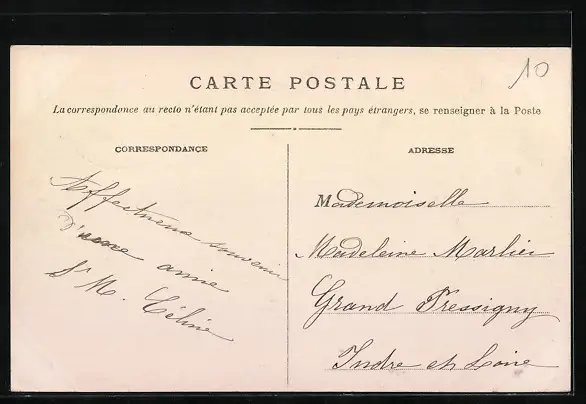 10
CARTE POSTALE
La correspondance au recto n'étant pas acceptée par tous les pays étrangers, se renseigner à la Poste
CORRESPONDANCE
Affectueux souvenir
D'une amie
Sr M. Céline
ADRESSE
Mademoiselle
Madeleine Marlier
Grand Pressigny
Indre et Loire